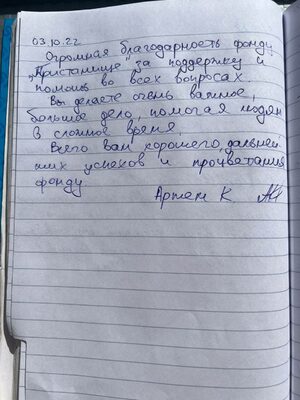 03.10.22
Огромная благодарность фонду
„Пристанище" за поддержку и
помощь во всех вопросах.
Вы делаете очень важное,
большое дело, помогая людям
в сложное время.
Всего вам хорошего, дальней-
ших успехов и процветания
фонду.
Артем К